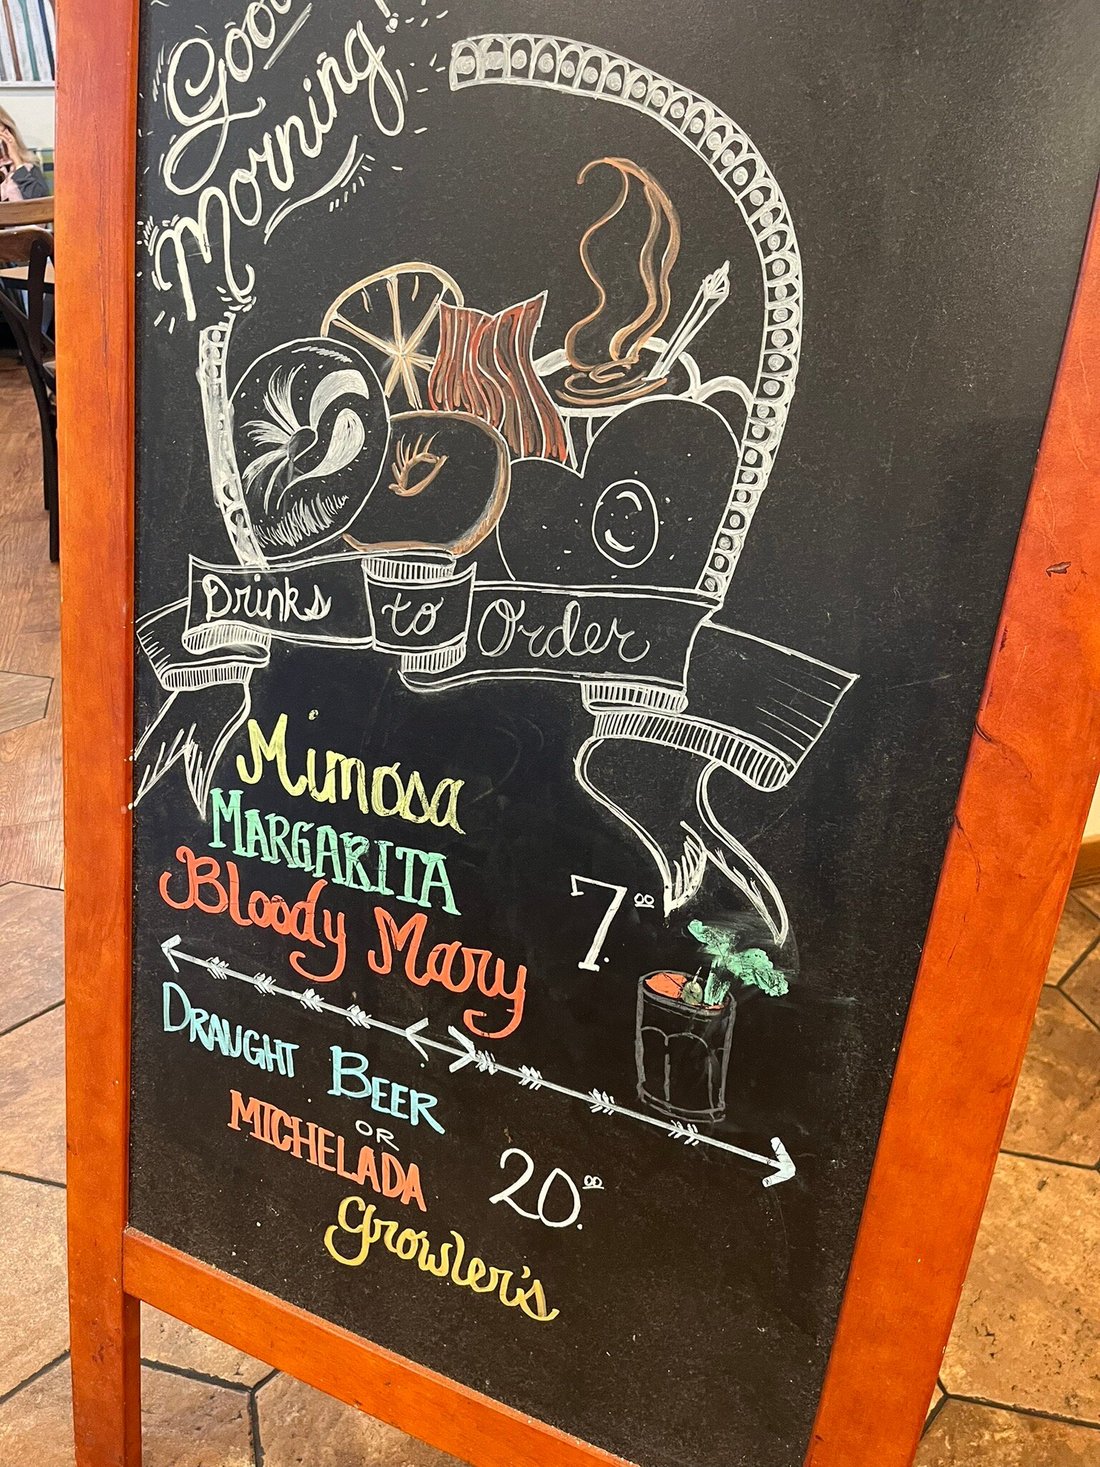 Good
Morning!
Drinks to Order
Mimosa
MARGARITA
Bloody Mary
7.00
DRAUGHT BEER
OR
MICHELADA
20.00
Growler's